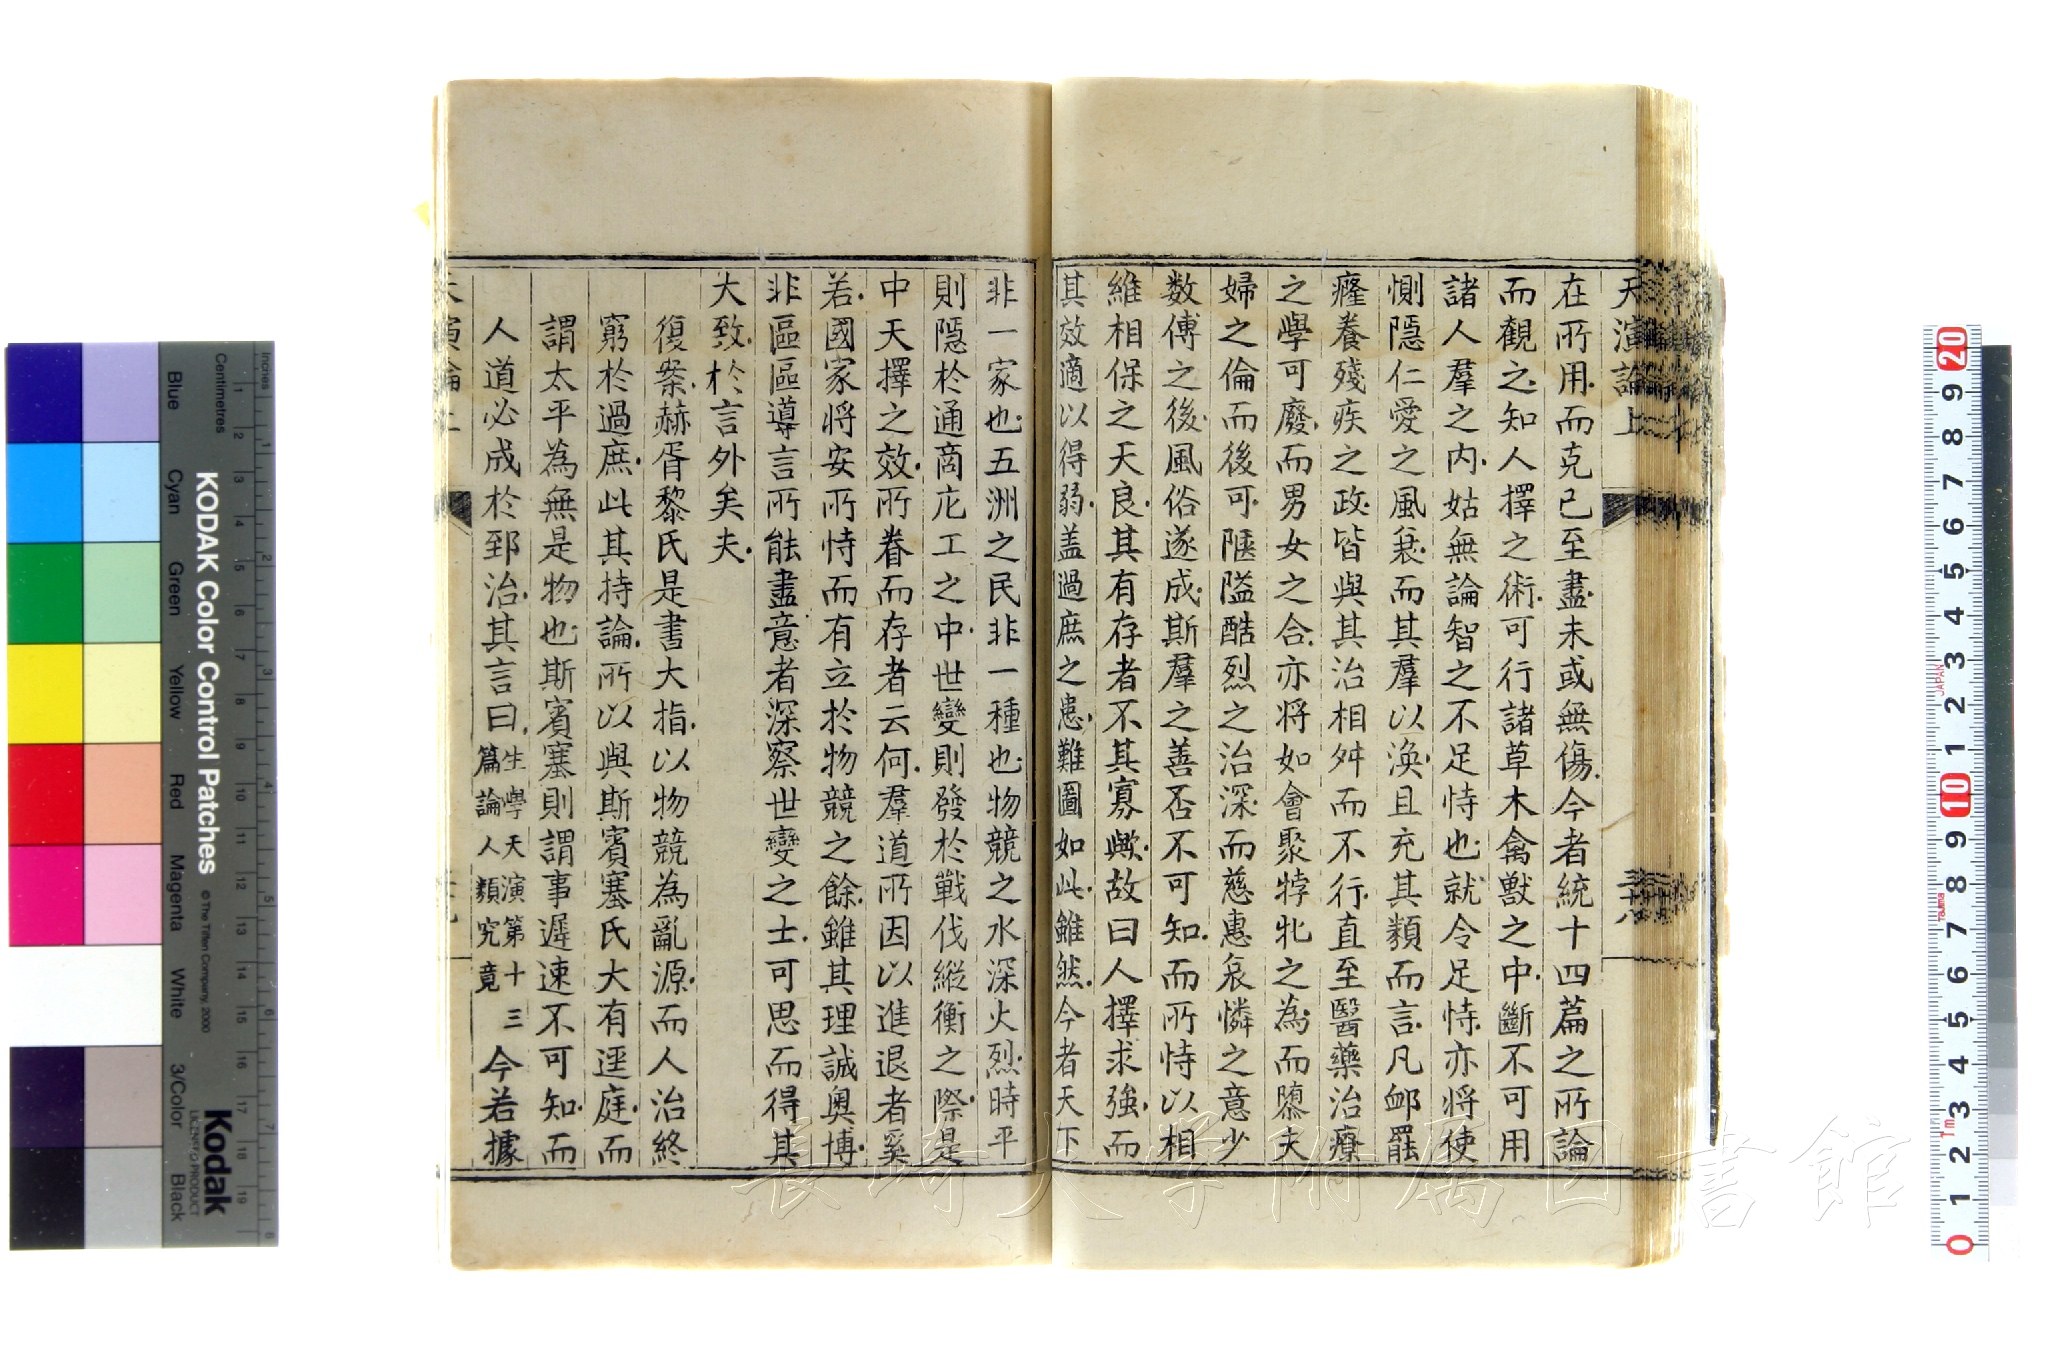 天演論上
在所用.而克己至盡.未或無傷.今者統十四篇之所論
而觀之.知人擇之術.可行諸草木禽獸之中.斷不可用
諸人羣之內.姑無論智之不足恃也.就令足恃.亦將使
惻隱仁愛之風衰.而其羣以渙.且充其類而言.凡卹罷
癃養殘疾之政.皆與其治相舛而不行.直至醫藥治療
之學可廢.而男女之合.亦將如會聚牸牝之為.而隳夫
婦之倫而後可.隁隘酷烈之治深.而慈惠哀憐之意少.
数傳之後.風俗遂成.斯羣之善否不可知.而所恃以相
維相保之天良.其有存者不其寡歟.故曰人擇求強.而
其效適以得弱.盖過庶之患.難圖如此.雖然.今者天下
非一家也.五洲之民非一種也.物競之水深火烈.時平
則隱於通商庀工之中.世變則發於戰伐縱衡之際.是
中天擇之效.所眷而存者云何.羣道所因以進退者奚
若.國家將安所恃而有立於物競之餘.雖其理誠奧博.
非區區導言所能盡.意者深察世變之士.可思而得其
大致於言外矣夫.
復案.赫胥黎氏是書大指.以物競為亂源.而人治終
窮於過庶.此其持論.所以與斯賓塞氏大有逕庭.而
謂太平為無是物也.斯賓塞則謂事遲速不可知.而
人道必成於郅治.其言曰.生學天演第十三篇論人類究竟今若據
KODAK Color Control Patches
© The Tiffen Company, 2000
Kodak
LICENSED PRODUCT
Inches
Centimetres
Blue
Cyan
Green
Yellow
Red
Magenta
White
3/Color
Black
長崎大学附属図書館
JAPAN
Tajima